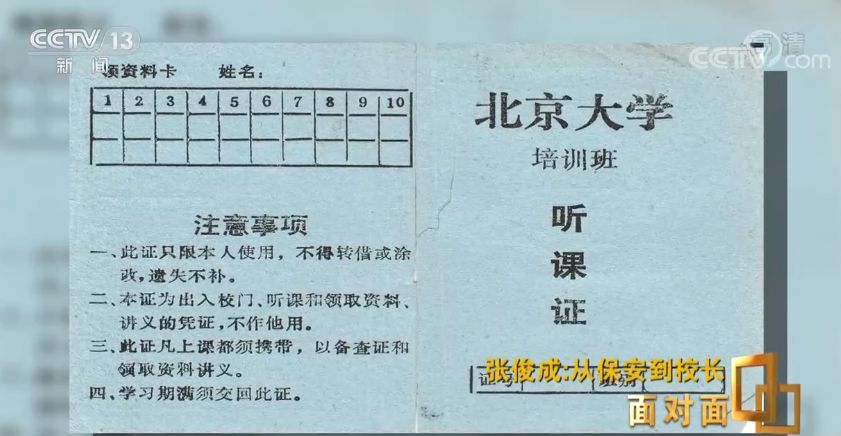 CCTV 13
新闻
高清
CCTV.com
领资料卡 姓名:
1 2 3 4 5 6 7 8 9 10
注意事项
一、此证只限本人使用，不得转借或涂
改，遗失不补。
二、本证为出入校门、听课和领取资料、
讲义的凭证，不作他用。
三、此证凡上课都须携带，以备查证和
领取资料讲义。
四、学习期满须交回此证。
北京大学
培训班
听
课
证
张俊成:从保安到校长
面对面